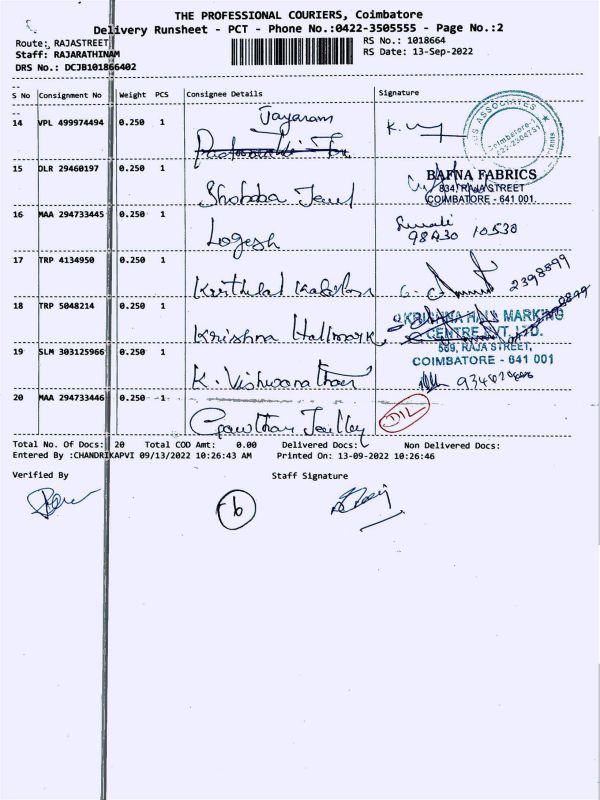 THE PROFESSIONAL COURIERS, Coimbatore
Delivery Runsheet - PCT - Phone No.:0422-3505555 - Page No.:2
Route: RAJASTREET
Staff: RAJARATHINAM
DRS No.: DCJB101866402
RS No.: 1018664
RS Date: 13-Sep-2022
S No Consignment No Weight PCS Consignee Details Signature
14 VPL 499974494 0.250 1 Jayaram
15 DLR 29460197 0.250 1 Shobaba
BAFNA FABRICS
834, RAJA STREET
COIMBATORE - 641 001.
16 MAA 294733445 0.250 1 Logesh
98430 10530
17 TRP 4134950 0.250 1
2398899
18 TRP 5048214 0.250 1 Krishna Hallmark
KRISHNA HALL MARKING
CENTRE PVT. LTD.
589, RAJA STREET,
COIMBATORE - 641 001
19 SLM 303125966 0.250 1 K. Vishwanathan
20 MAA 294733446 0.250 1 Gowtham
Total No. Of Docs: 20 Total COD Amt: 0.00 Delivered Docs: Non Delivered Docs:
Entered By :CHANDRIKAPVI 09/13/2022 10:26:43 AM Printed On: 13-09-2022 10:26:46
Verified By Staff Signature
6